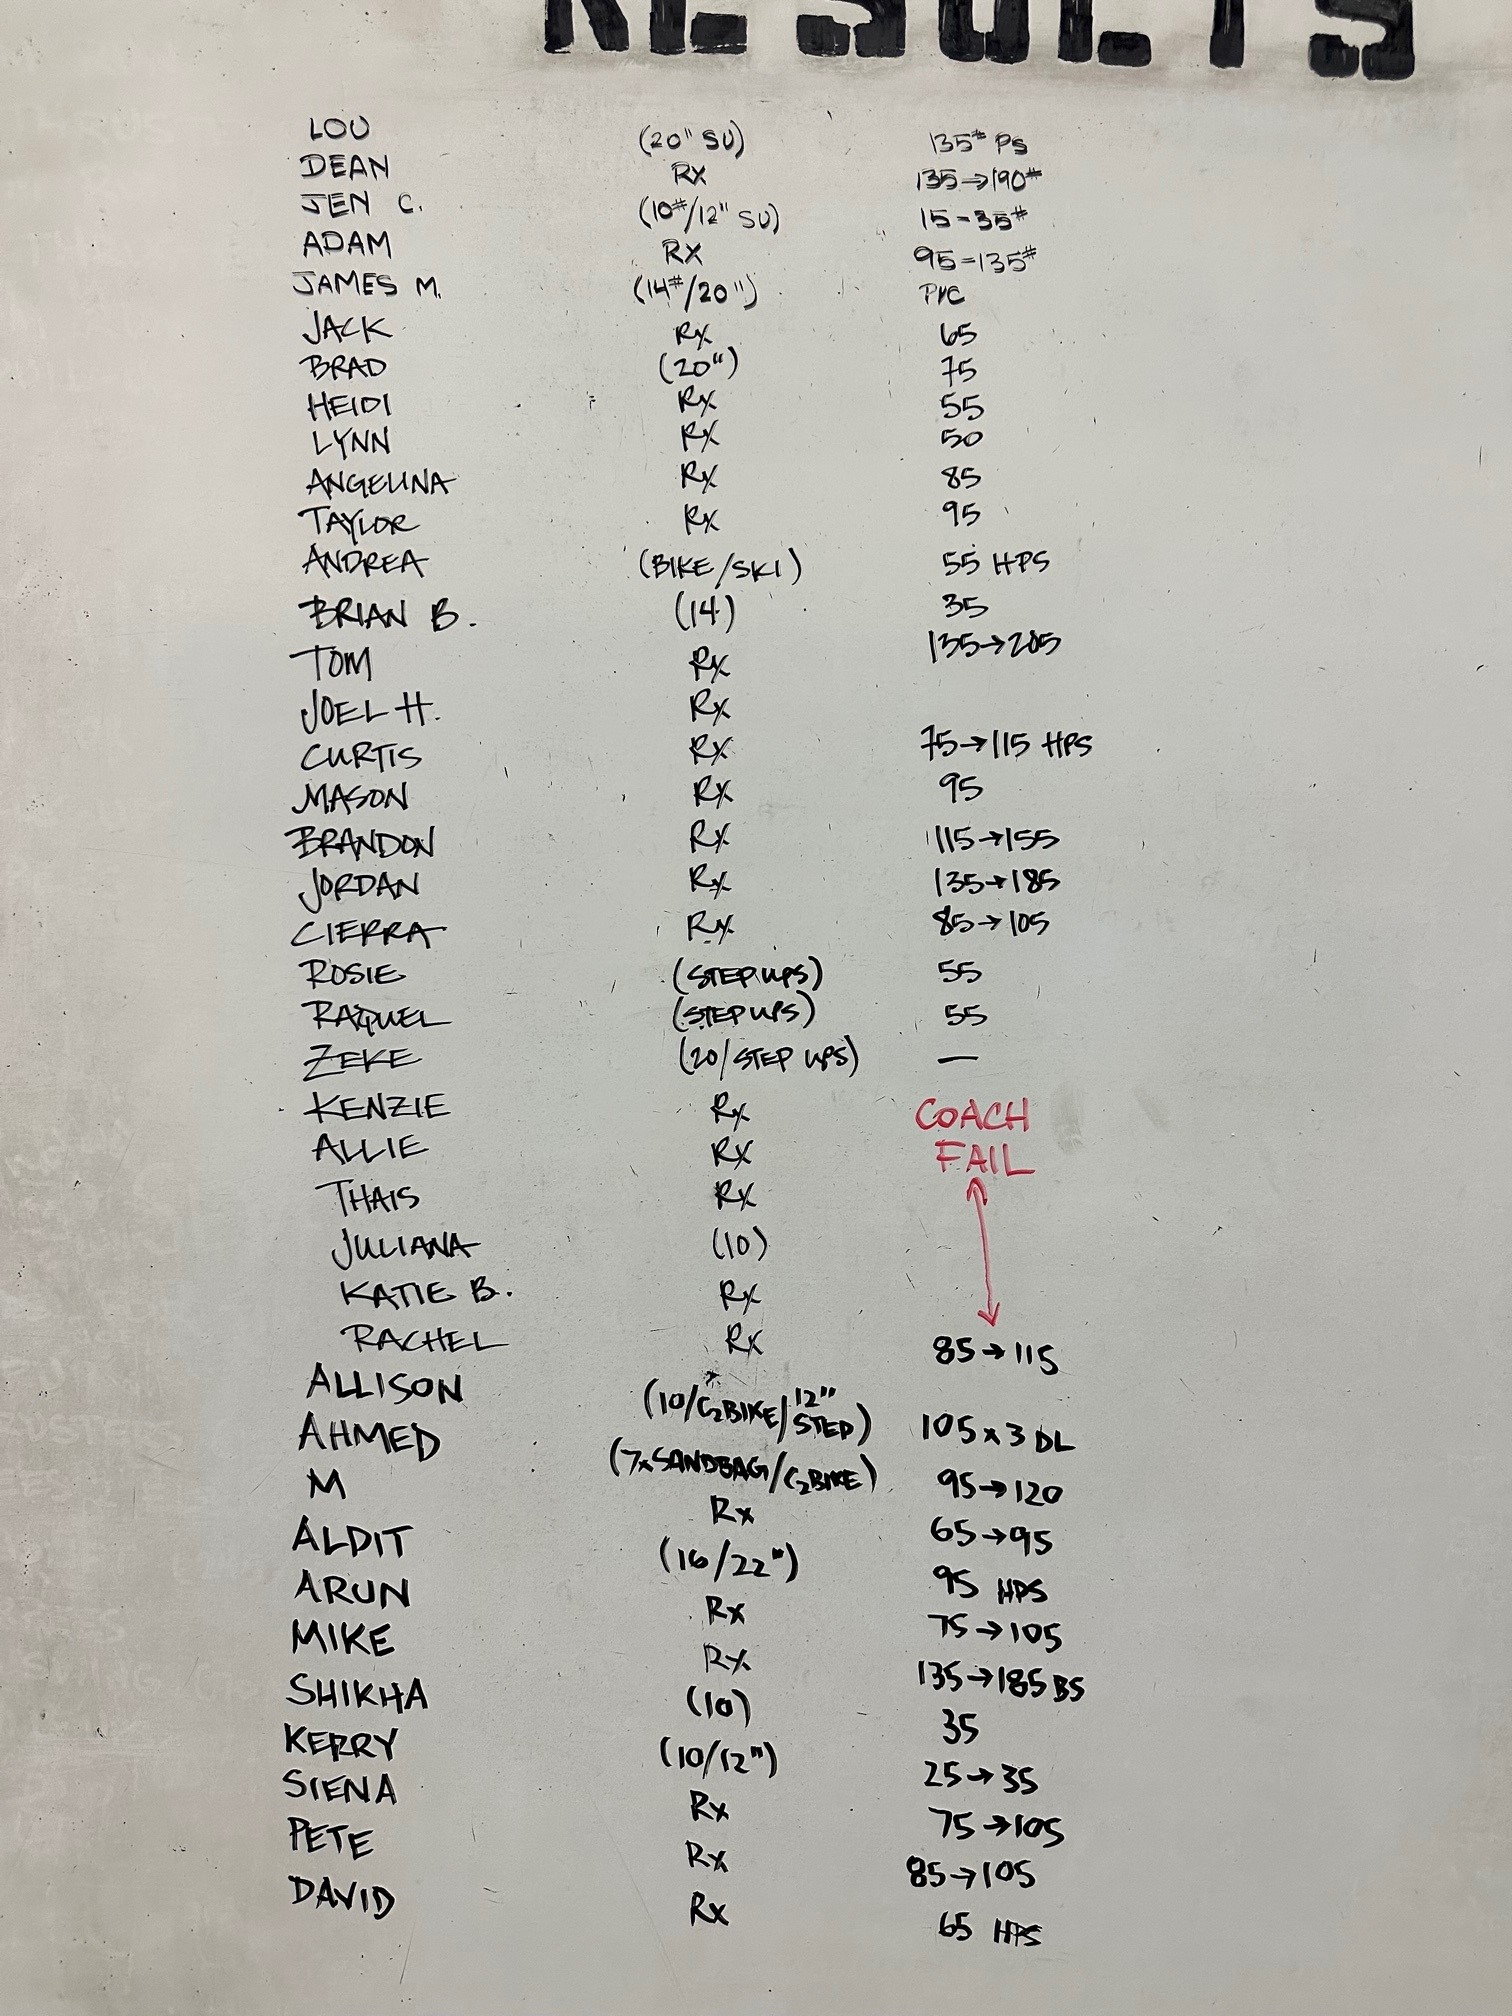 RESULTS
LOU (20" SU) 135# PS
DEAN RX 135→190#
JEN C. (10#/12" SU) 15-35#
ADAM RX 95-135#
JAMES M. (14#/20") PVC
JACK Rx 65
BRAD (20") 75
HEIDI Rx 55
LYNN Rx 50
ANGELINA Rx 85
TAYLOR Rx 95
ANDREA (BIKE/SKI) 55 HPS
BRIAN B. (14) 35
TOM Rx 135→205
JOEL H. Rx
CURTIS Rx 75→115 HPS
MASON Rx 95
BRANDON Rx 115→155
JORDAN Rx 135→185
CIERRA Rx 85→105
ROSIE (STEP UPS) 55
RAQUEL (STEP UPS) 55
ZEKE (20/STEP UPS) —
KENZIE Rx COACH
ALLIE Rx FAIL
THAIS Rx
JULIANA (10)
KATIE B. Rx
RACHEL Rx 85→115
ALLISON (10/C2BIKE/12" STEP) 105x3 DL
AHMED (7xSANDBAG/C2BIKE) 95→120
M Rx 65→95
ALDIT (16/22") 95 HPS
ARUN Rx 75→105
MIKE Rx 135→185 BS
SHIKHA (10) 35
KERRY (10/12") 25→35
SIENA Rx 75→105
PETE Rx 85→105
DAVID Rx 65 HPS